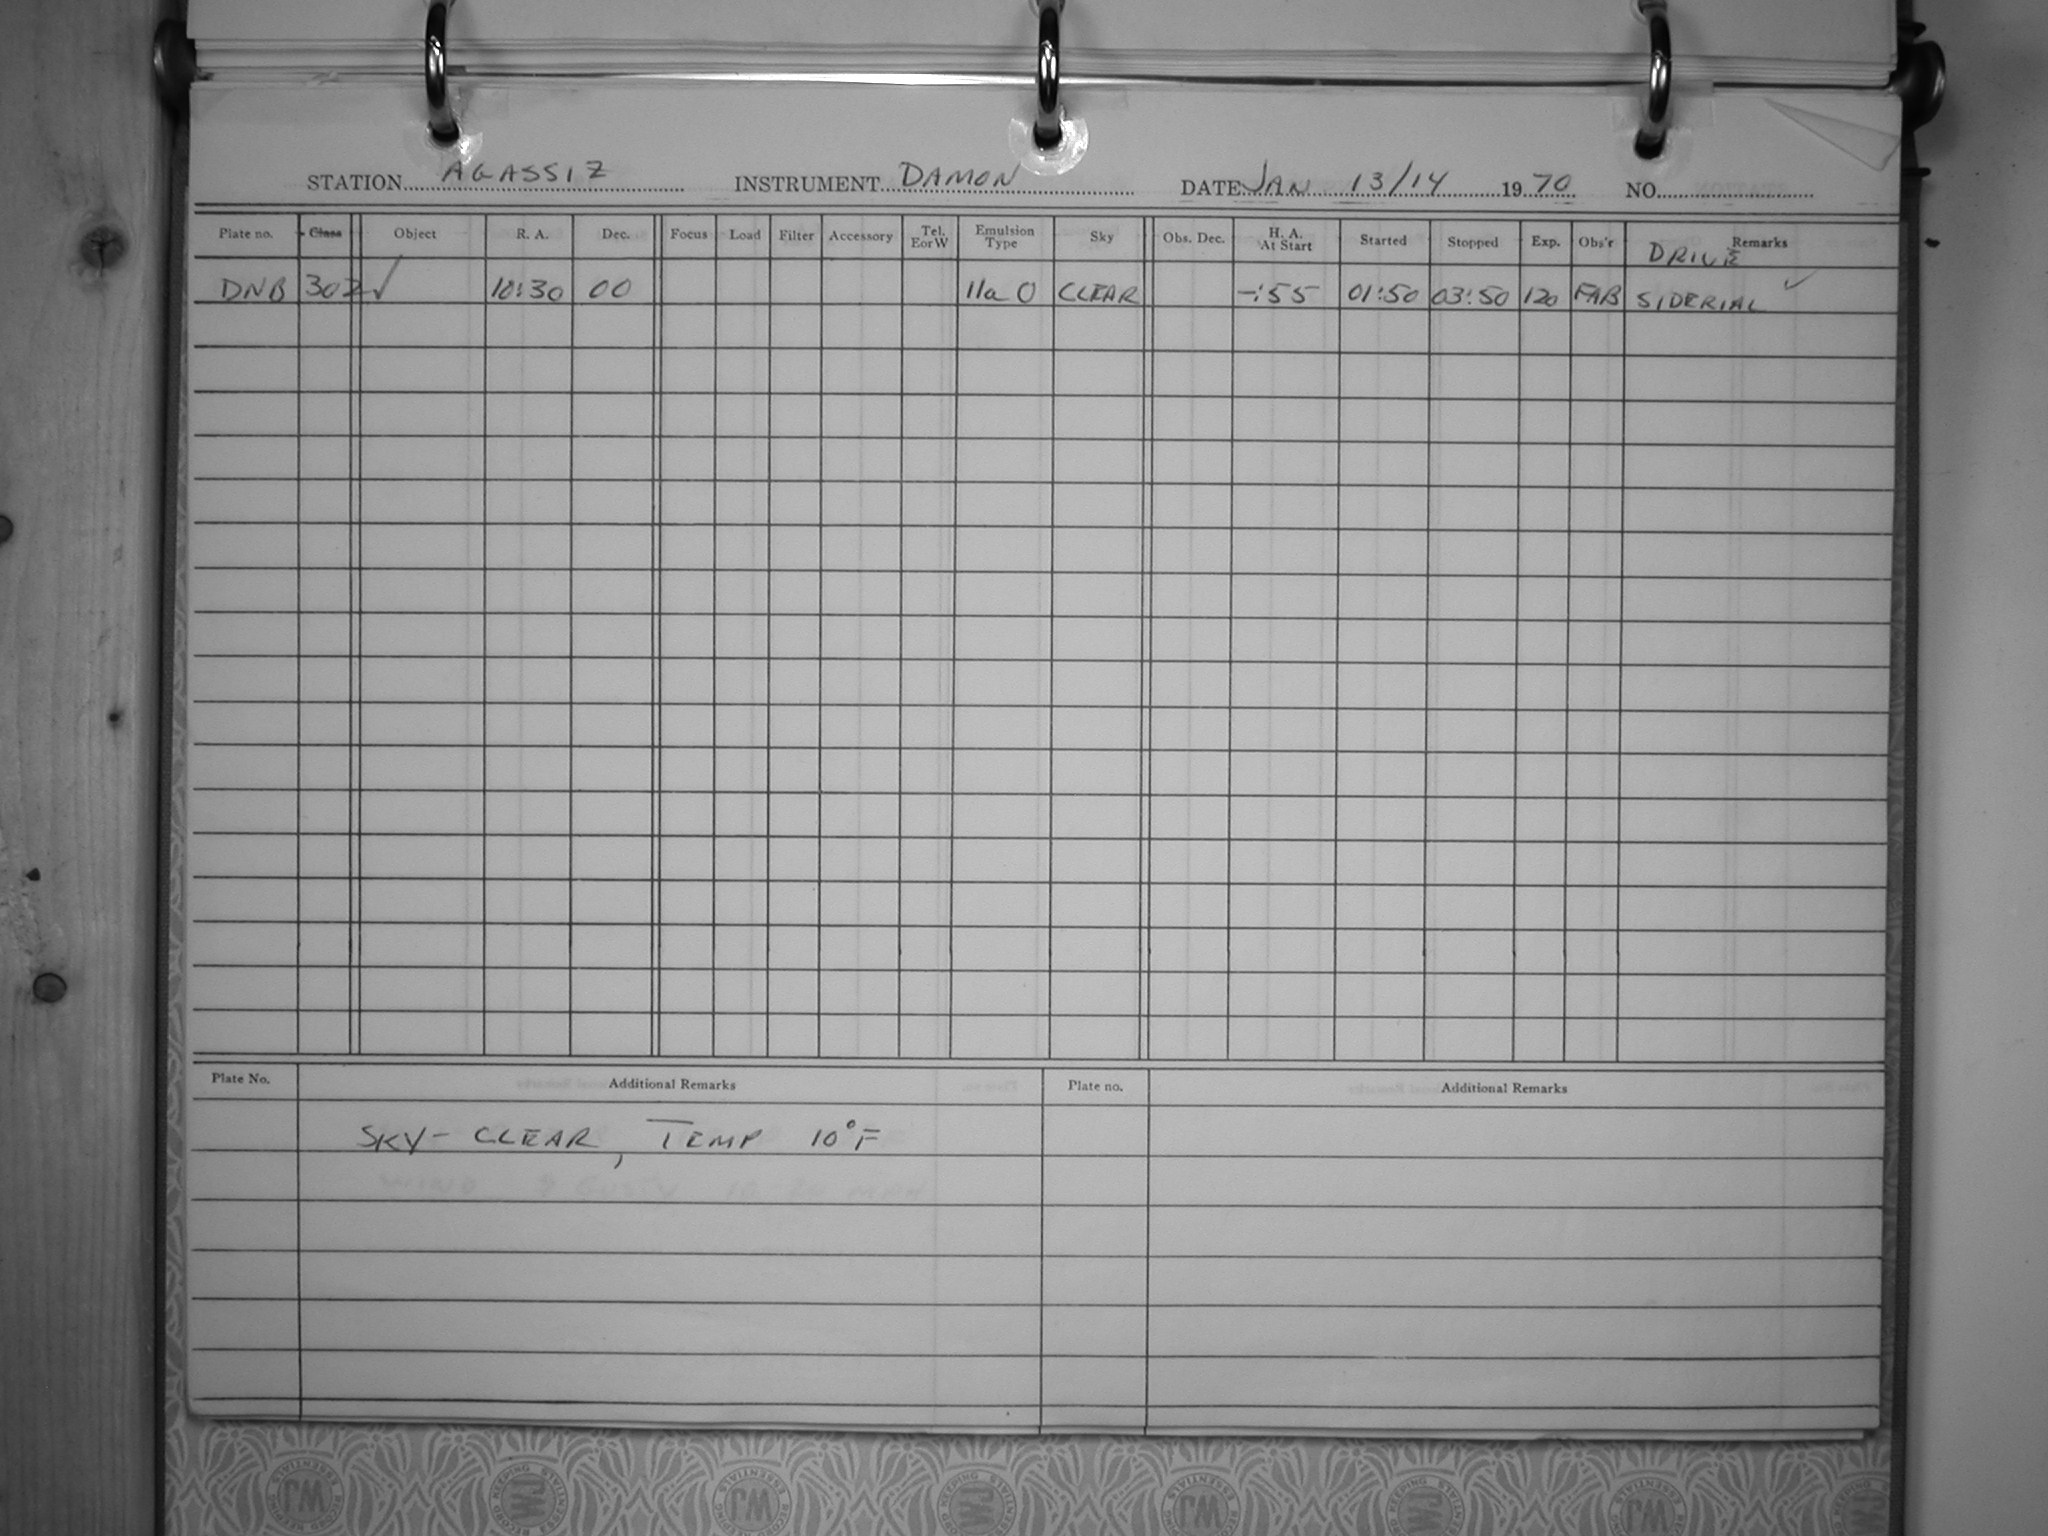 STATION AGASSIZ INSTRUMENT DAMON DATE JAN 13/14 1970 NO.
Plate no. Class Object R. A. Dec. Focus Load Filter Accessory Tel. E or W Emulsion Type Sky Obs. Dec. H. A. At Start Started Stopped Exp. Obs'r DRIVE Remarks
DNB 302 ✓ 10:30 00 IIa O CLEAR -:55 01:50 03:50 120 FAB SIDERIAL ✓
Plate No. Additional Remarks Plate no. Additional Remarks
SKY - CLEAR, TEMP 10°F